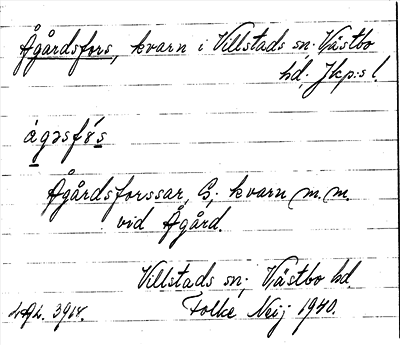 Ågårdsfors, kvarn i Villstads sn. Västbo
hd, Jkp:s l.
ågəsfɷs
Ågårdsforssar, G; kvarn m. m.
vid Ågård.
Villstads sn; Västbo hd
Folke Neij 1940.